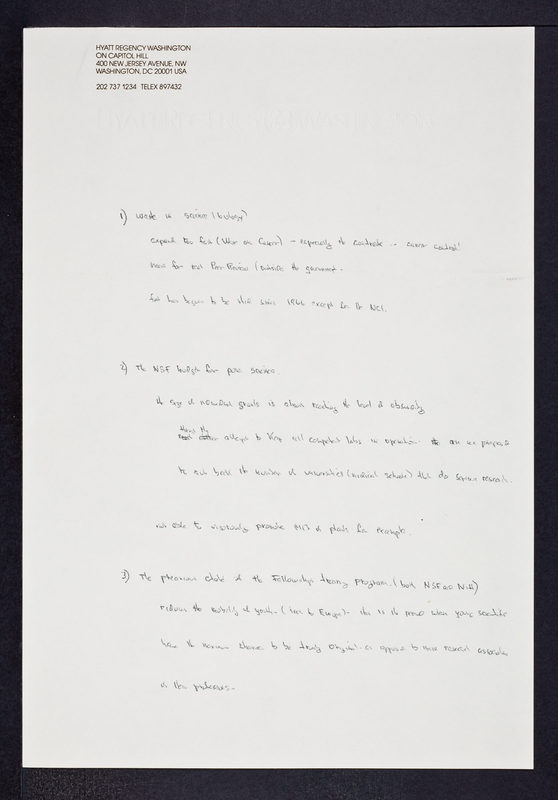 HYATT REGENCY WASHINGTON
ON CAPITOL HILL
400 NEW JERSEY AVENUE, NW
WASHINGTON, DC 20001 USA
202 737 1234 TELEX 897432
1) Waste in science (biology)
expand too fast (War on Cancer) - especially the contracts - cancer control
need for real Peer Review (outside the government -
fat has begun to be since 1966 except for the NCI.
2) The NSF budget for pure science
the size of grants is often reaching the level of obscurity
attempt to keep all competent labs in operation. are we prepared
to cut back the number of universities (medical schools) that do serious research.
not able to vigorously promote of plants for example.
3) The precarious state of the Fellowships Training Program. (both NSF and NIH)
reduces the mobility of youth - ( to Europe) - this is the period when young scientists
have the maximum chance to be truly original - as opposed to mere research associates
of their professors -